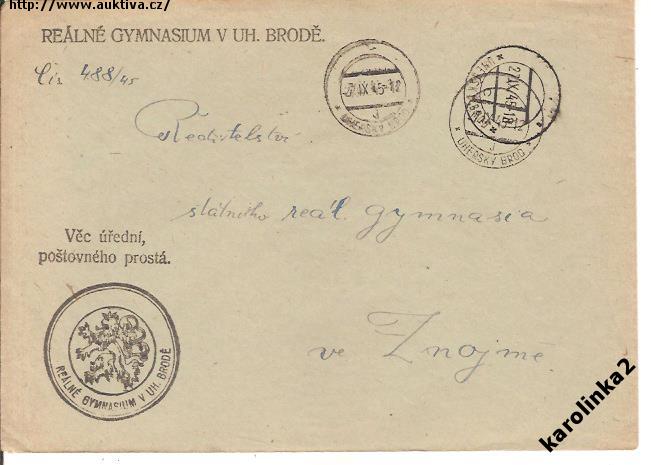 http://www.auktiva.cz/
REÁLNÉ GYMNASIUM V UH. BRODĚ.
Čís 488/45
-7.IX 45-12
UHERSKÝ BROD
UHERSKÝ BROD
Ředitelství
státního reál. gymnasia
Věc úřední,
poštovného prostá.
ve Znojmě.
REÁLNÉ GYMNASIUM V UH. BRODĚ
karolinka2